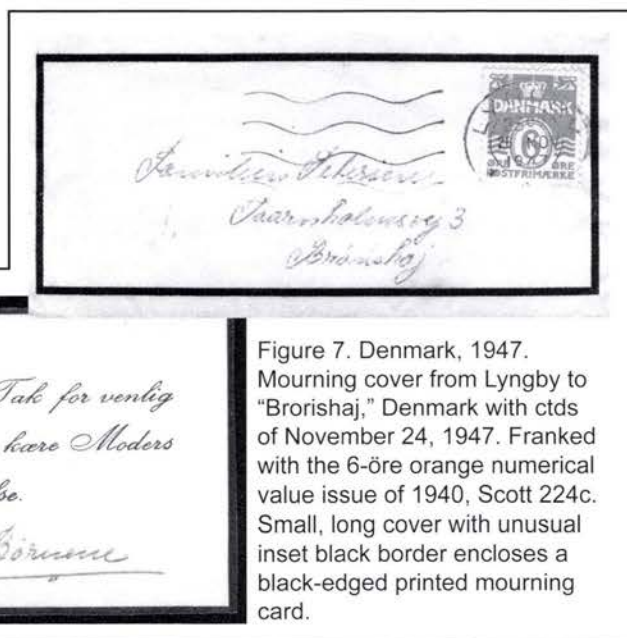 DANMARK
6
NOV
1947
ØRE ØRE
POSTFRIMÆRKE
Familien Petersen
Taarnholmsvej 3
Brönshøj
Tak for venlig
kære Moders
se.
Börnene
Figure 7. Denmark, 1947.
Mourning cover from Lyngby to
“Brorishaj,” Denmark with ctds
of November 24, 1947. Franked
with the 6-öre orange numerical
value issue of 1940, Scott 224c.
Small, long cover with unusual
inset black border encloses a
black-edged printed mourning
card.